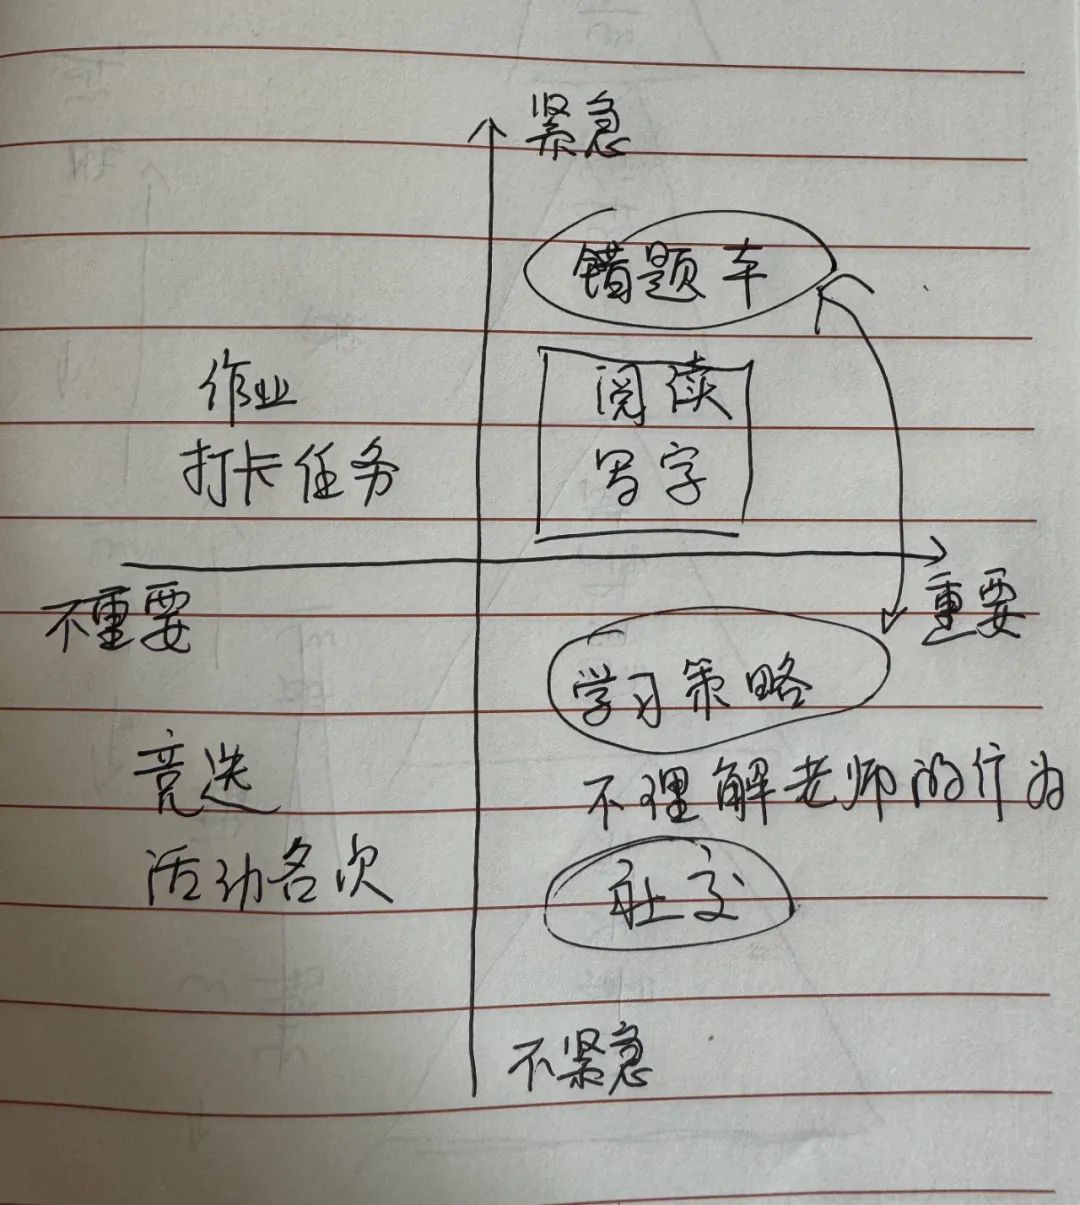 紧急
错题车
阅读
写字
作业
打卡任务
不重要
重要
学习策略
竞选
不理解老师的行为
活动名次
社交
不紧急